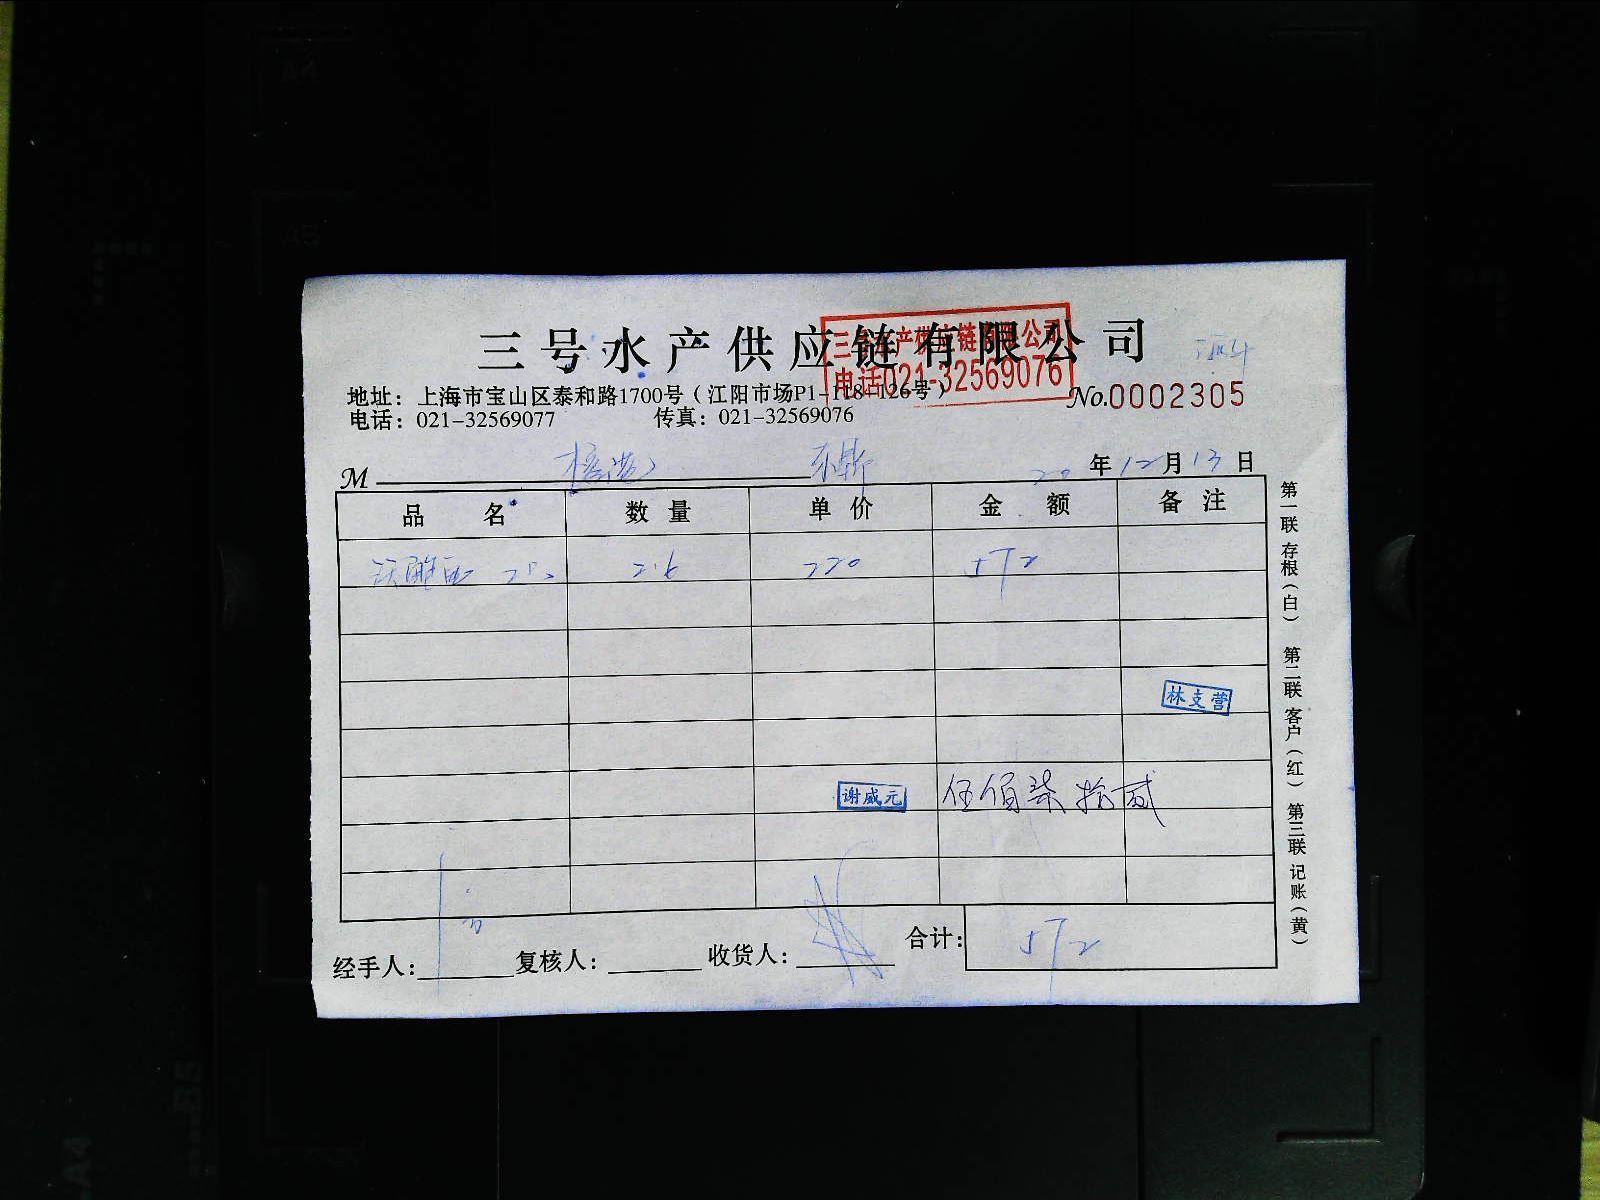 三号水产供应链有限公司
三号水产供应链有限公司
电话021-32569076
地址：上海市宝山区泰和路1700号（江阳市场P1-118-126号）
No.0002305
电话：021-32569077 传真：021-32569076
M 20年12月13日
品名 数量 单价 金额 备注
2.6 220 572
林支营
谢威元 伍佰柒拾贰
合计：572
经手人： 复核人： 收货人：
第一联 存根（白） 第二联 客户（红） 第三联 记账（黄）